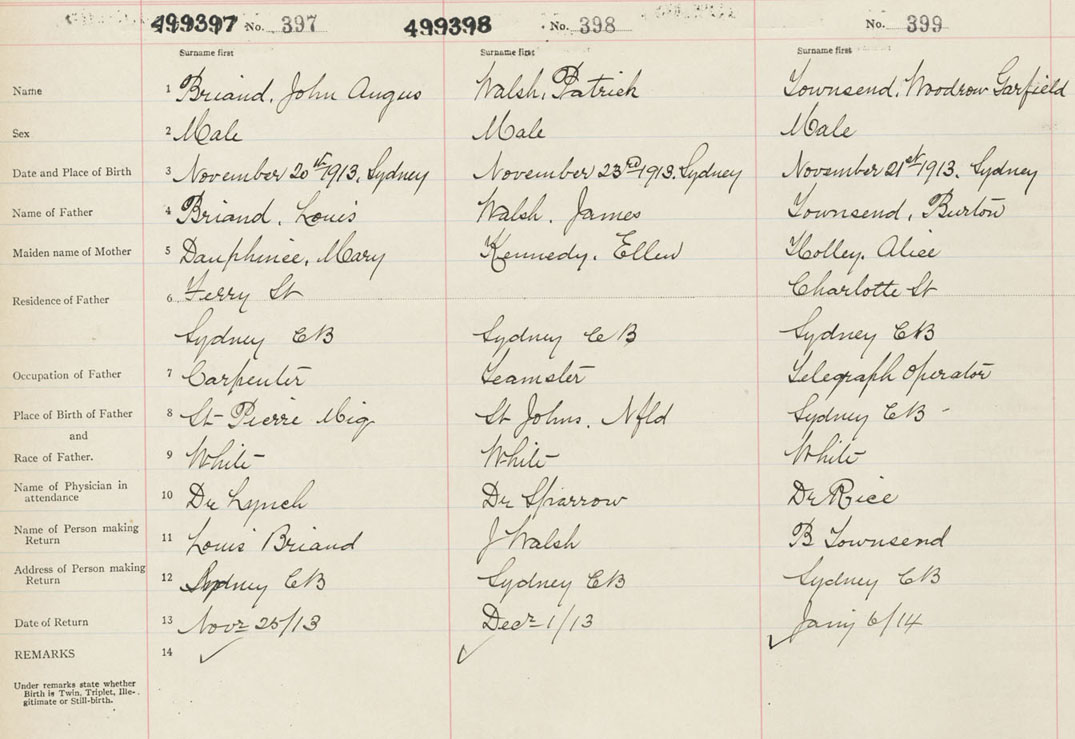 499397 No. 397 499398 No. 398 No. 399
Surname first Surname first Surname first
Name 1 Briand, John Angus Walsh, Patrick Townsend, Woodrow Garfield
Sex 2 Male Male Male
Date and Place of Birth 3 November 20th 1913. Sydney November 23rd 1913. Sydney November 21st 1913. Sydney
Name of Father 4 Briand, Louis Walsh, James Townsend, Burton
Maiden name of Mother 5 Dauphinee, Mary Kennedy, Ellen Holley, Alice
Residence of Father 6 Ferry St Charlotte St
Sydney CB Sydney CB Sydney CB
Occupation of Father 7 Carpenter Teamster Telegraph Operator
Place of Birth of Father 8 St Pierre Miq St Johns, Nfld Sydney CB -
and
Race of Father. 9 White White White
Name of Physician in attendance 10 Dr Lynch Dr Sparrow Dr Rice
Name of Person making Return 11 Louis Briand J Walsh B Townsend
Address of Person making Return 12 Sydney CB Sydney CB Sydney CB
Date of Return 13 Novr 25/13 Decr 1/13 Jany 6/14
REMARKS 14
Under remarks state whether
Birth is Twin, Triplet, Ille-
gitimate or Still-birth.